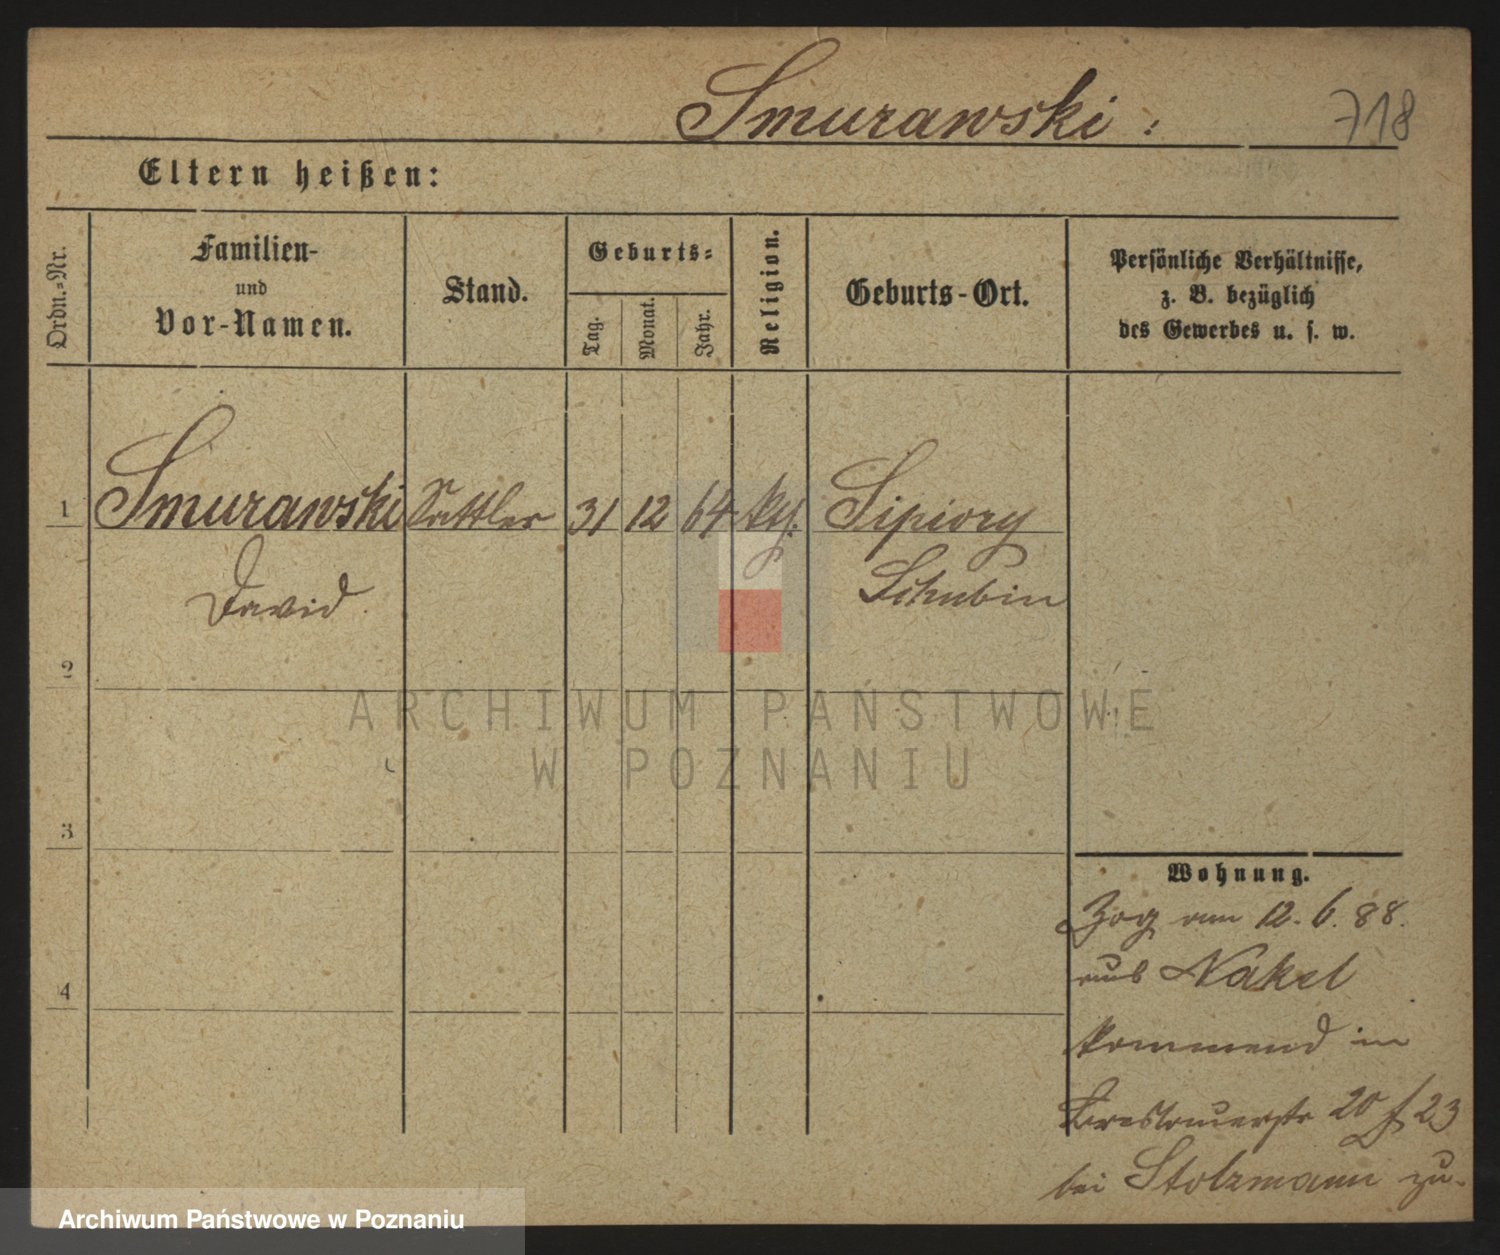 Smurawski :
718
Eltern heißen:
Ordn.-Nr.
Familien-
und
Vor-Namen.
Stand.
Geburts-
Tag.
Monat.
Jahr.
Religion.
Geburts-Ort.
Persönliche Verhältnisse,
z. B. bezüglich
des Gewerbes u. s. w.
1 Smurawski Sattler 31 12 64 kth. Sipiory
David Schubin
2
3
4
Wohnung.
Zog am 12. 6. 88.
aus Nakel
kommend in
20 / 23
bei Stolzmann zu.
ARCHIWUM PAŃSTWOWE
W POZNANIU
Archiwum Państwowe w Poznaniu